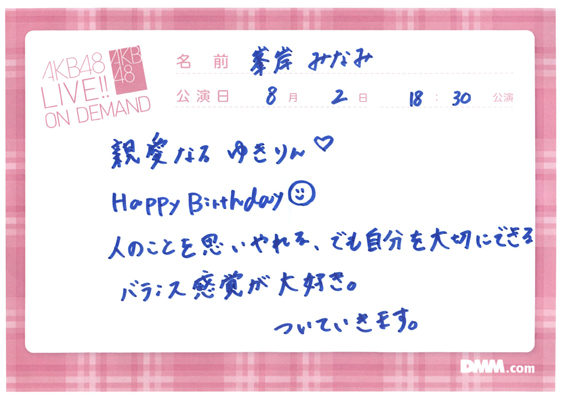 AKB48
LIVE!!
ON DEMAND
AKB
48
名前 峯岸 みなみ
公演日 8月 2日 18:30 公演
親愛なる ゆきりん♡
Happy Birthday☺
人のことを思いやれる、でも自分を大切にできる
バランス感覚が大好き。
ついていきます。
DMM.com